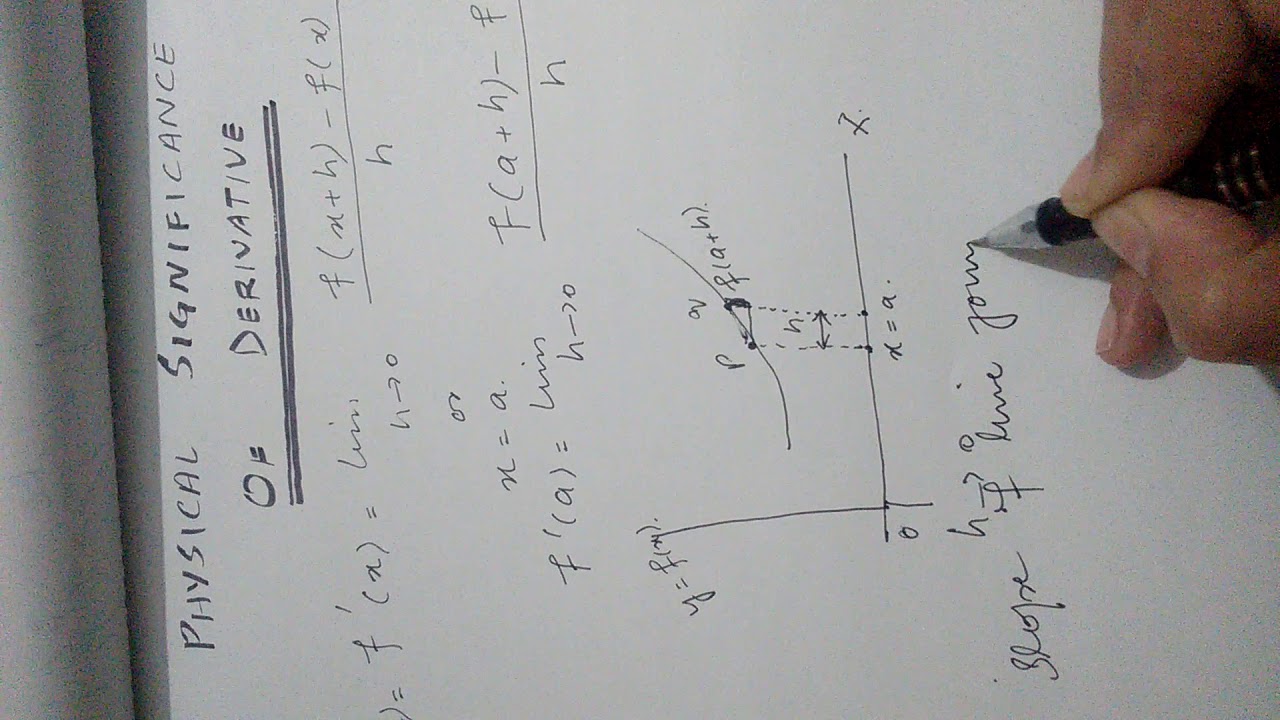 PHYSICAL SIGNIFICANCE
OF DERIVATIVE
) = f'(x) = lim h→0 f(x+h) – f(x) / h
or
x = a.
f'(a) = lim h→0 f(a+h) – f / h
y = f(x).
P
f(a+h).
h
x = a.
X.
0
h → 0
slope of line join